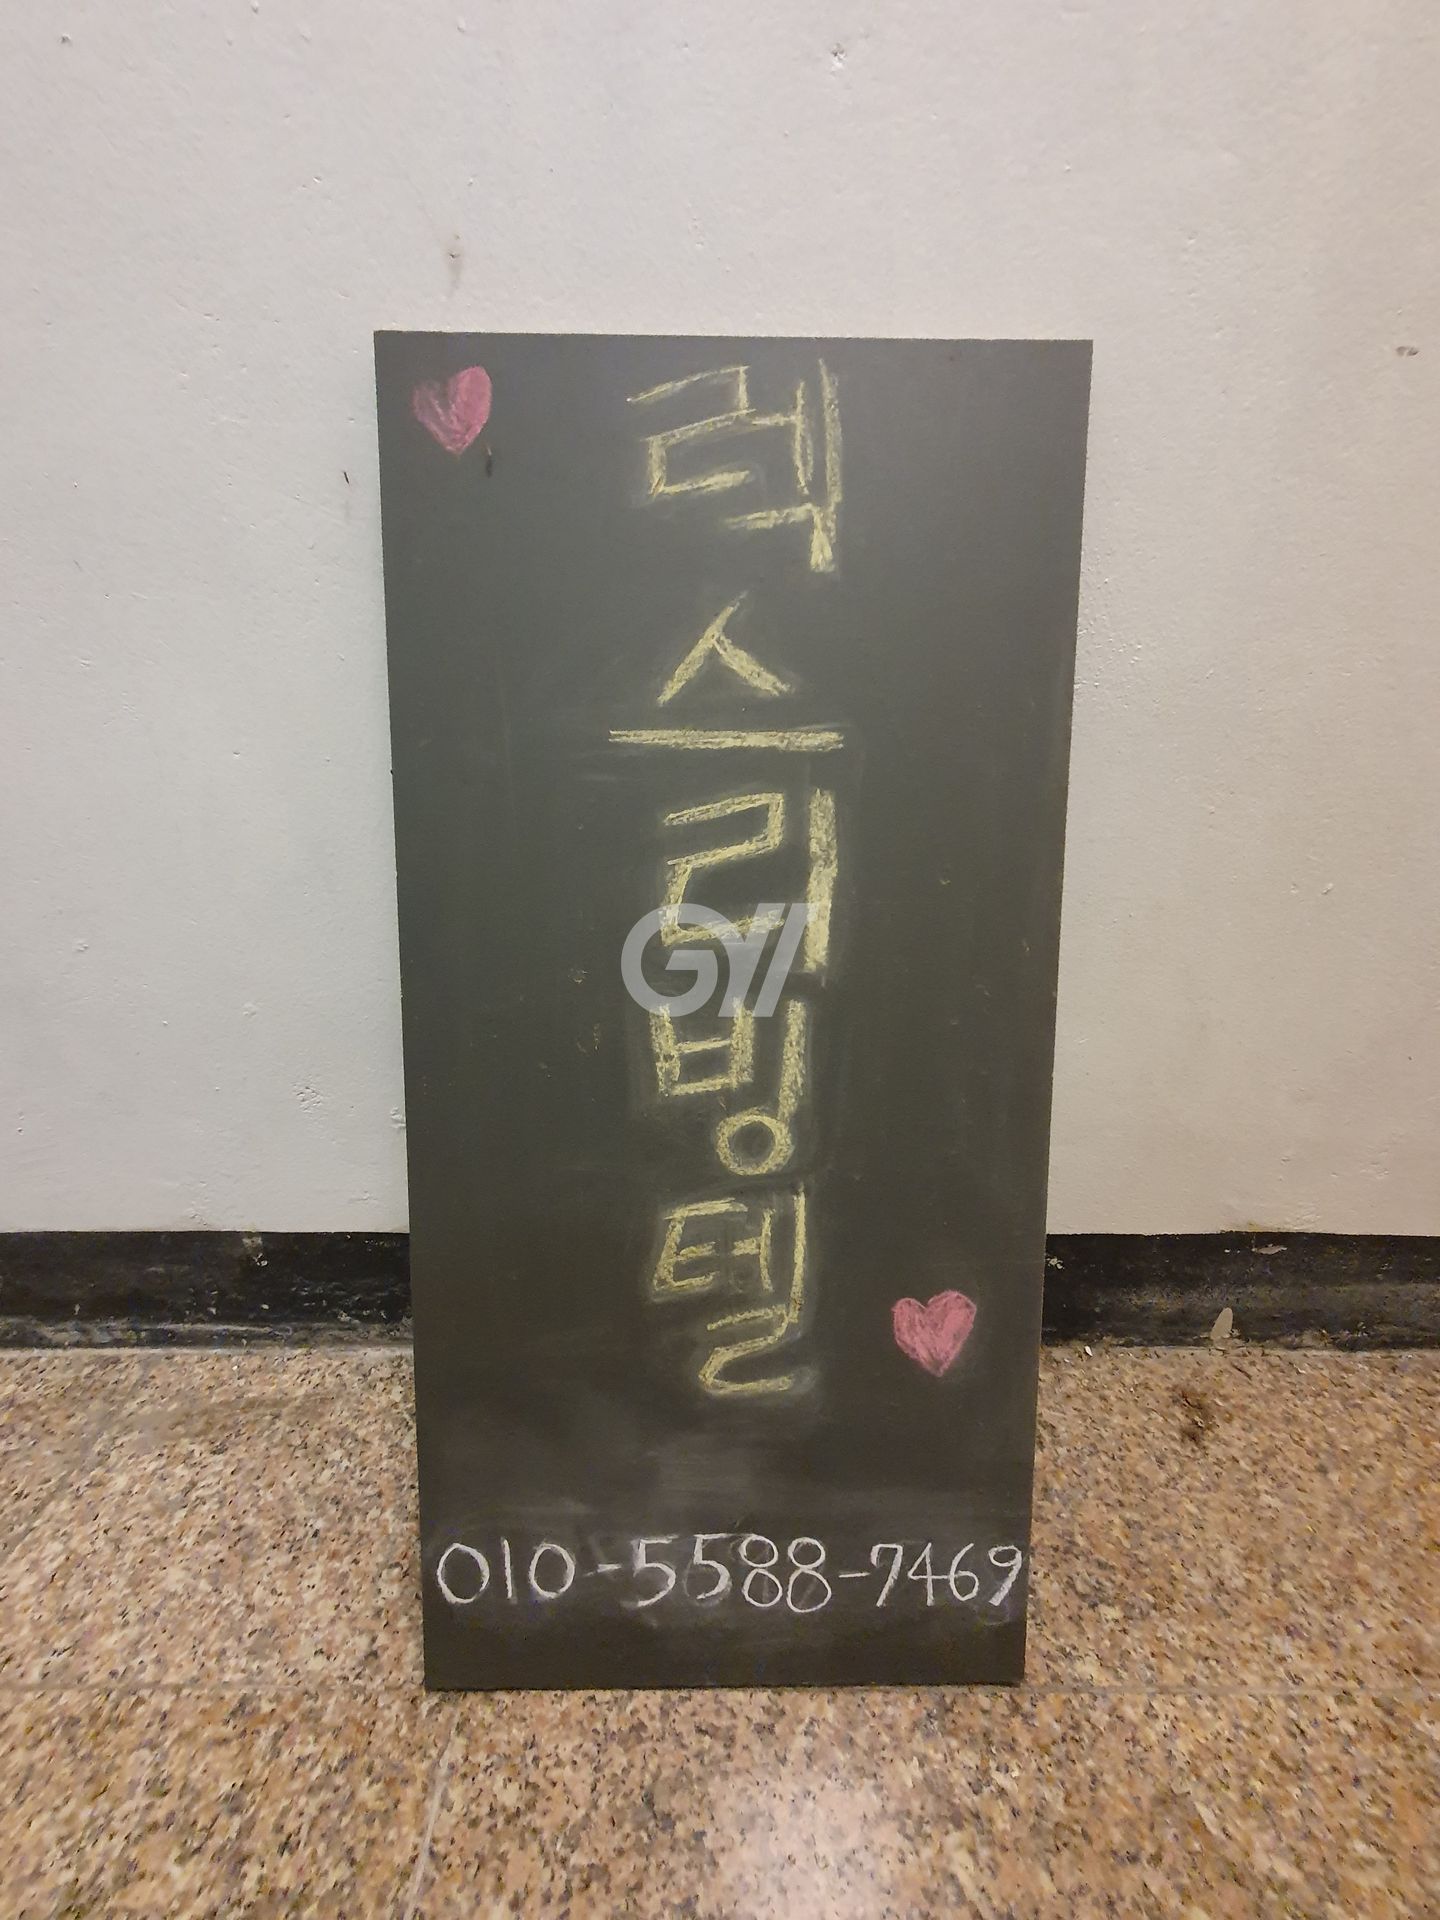 렉스리빙텔
010-5588-7469
GYI